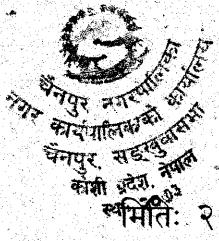 चैनपुर नगरपालिका
नगर कार्यपालिकाको कार्यालय
चैनपुर, सङ्खुवासभा
कोशी प्रदेश, नेपाल
मितिः २